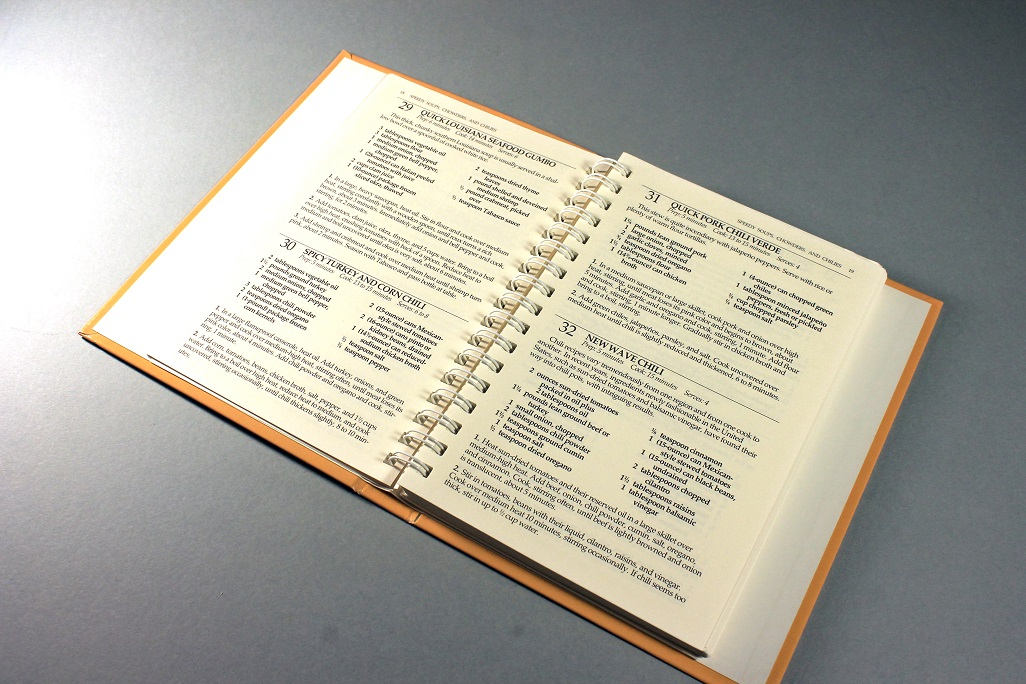 18 SPEEDY SOUPS, CHOWDERS, AND CHILIES
29 QUICK LOUISIANA SEAFOOD GUMBO
Prep: 4 minutes Cook: 14 minutes Serves: 6
This thick, chunky southern Louisiana soup is usually served in a shal-
low bowl over a spoonful of cooked white rice.
3 tablespoons vegetable oil
3 tablespoons flour
1 medium onion, chopped
1 medium green bell pepper,
chopped
1 (28-ounce) can Italian peeled
tomatoes with juice
2 cups clam juice
1 (10-ounce) package frozen
sliced okra, thawed
2 teaspoons dried thyme
leaves
1 pound shelled and deveined
medium shrimp
½ pound crabmeat, picked
over
½ teaspoon Tabasco sauce
1. In a large, heavy saucepan, heat oil. Stir in flour and cook over medium
heat, stirring constantly with a wooden spoon, until roux turns a rich
brown, about 5 minutes. Immediately add onion and bell pepper and cook,
stirring, for 2 minutes.
2. Add tomatoes, clam juice, okra, thyme, and 3 cups water. Bring to a boil
over high heat, crushing tomatoes with side of spoon. Reduce heat to
medium and boil uncovered until okra is very soft, about 6 minutes.
3. Add shrimp and crabmeat and cook over medium heat until shrimp turn
pink, about 3 minutes. Season with Tabasco and pass bottle at table.
30 SPICY TURKEY AND CORN CHILI
Prep: 5 minutes Cook: 13 to 15 minutes Serves: 6 to 8
2 tablespoons vegetable oil
1½ pounds ground turkey
1 medium onion, chopped
1 medium green bell pepper,
chopped
3 tablespoons chili powder
2 teaspoons dried oregano
1 (10-ounce) package frozen
corn kernels
2 (15-ounce) cans Mexican-
style stewed tomatoes
2 (16-ounce) cans pinto or
kidney beans, drained
1 (14½-ounce) can reduced-
sodium chicken broth
½ teaspoon salt
¼ teaspoon pepper
1. In a large flameproof casserole, heat oil. Add turkey, onions, and green
pepper and cook over medium-high heat, stirring often, until meat loses its
pink color, about 4 minutes. Add chili powder and oregano and cook, stir-
ring, 1 minute.
2. Add corn, tomatoes, beans, chicken broth, salt, pepper, and 1½ cups
water. Bring to a boil over high heat, reduce heat to medium, and cook
uncovered, stirring occasionally, until chili thickens slightly, 8 to 10 min-
utes.
SPEEDY SOUPS, CHOWDERS, AND CHILIES 19
31 QUICK PORK CHILI VERDE
Prep: 5 minutes Cook: 13 to 15 minutes Serves: 4
This stew is quite incendiary with jalapeño peppers. Serve with rice or
plenty of warm flour tortillas.
1½ pounds lean ground pork
1 large onion, minced
3 garlic cloves, minced
1 teaspoon dried oregano
1½ tablespoons flour
1 (14½-ounce) can chicken
broth
1 (4-ounce) can chopped green
chilies
1 tablespoon minced jalapeño
peppers, fresh or pickled
¼ cup chopped parsley
¼ teaspoon salt
1. In a medium saucepan or large skillet, cook pork and onion over high
heat, stirring, until meat loses its pink color and begins to brown, about
5 minutes. Add garlic and oregano and cook, stirring, 1 minute. Add flour
and cook, stirring, 1 minute longer. Gradually stir in chicken broth and
bring to a boil.
2. Add green chilies, jalapeños, parsley, and salt. Cook uncovered over
medium heat until chili is slightly reduced and thickened, 6 to 8 minutes.
32 NEW WAVE CHILI
Prep: 5 minutes Cook: 15 minutes Serves: 4
Chili recipes vary tremendously from one region and from one cook to
another. In recent years, ingredients newly fashionable in the United
States, such as sun-dried tomatoes and balsamic vinegar, have found their
way into chili pots, with intriguing results.
2 ounces sun-dried tomatoes
packed in oil plus
2 tablespoons oil
1¼ pounds lean ground beef or
turkey
1 small onion, chopped
2 tablespoons chili powder
1½ teaspoons ground cumin
1 teaspoon salt
½ teaspoon dried oregano
¼ teaspoon cinnamon
1 (15-ounce) can Mexican-
style stewed tomatoes
1 (15-ounce) can black beans,
undrained
2 tablespoons chopped
cilantro
1½ tablespoons raisins
1 tablespoon balsamic
vinegar
1. Heat sun-dried tomatoes and their reserved oil in a large skillet over
medium-high heat. Add beef, onion, chili powder, cumin, salt, oregano,
and cinnamon. Cook, stirring often, until beef is lightly browned and onion
is translucent, about 5 minutes.
2. Stir in tomatoes, beans with their liquid, cilantro, raisins, and vinegar.
Cook over medium heat 10 minutes, stirring occasionally. If chili seems too
thick, stir in up to ½ cup water.